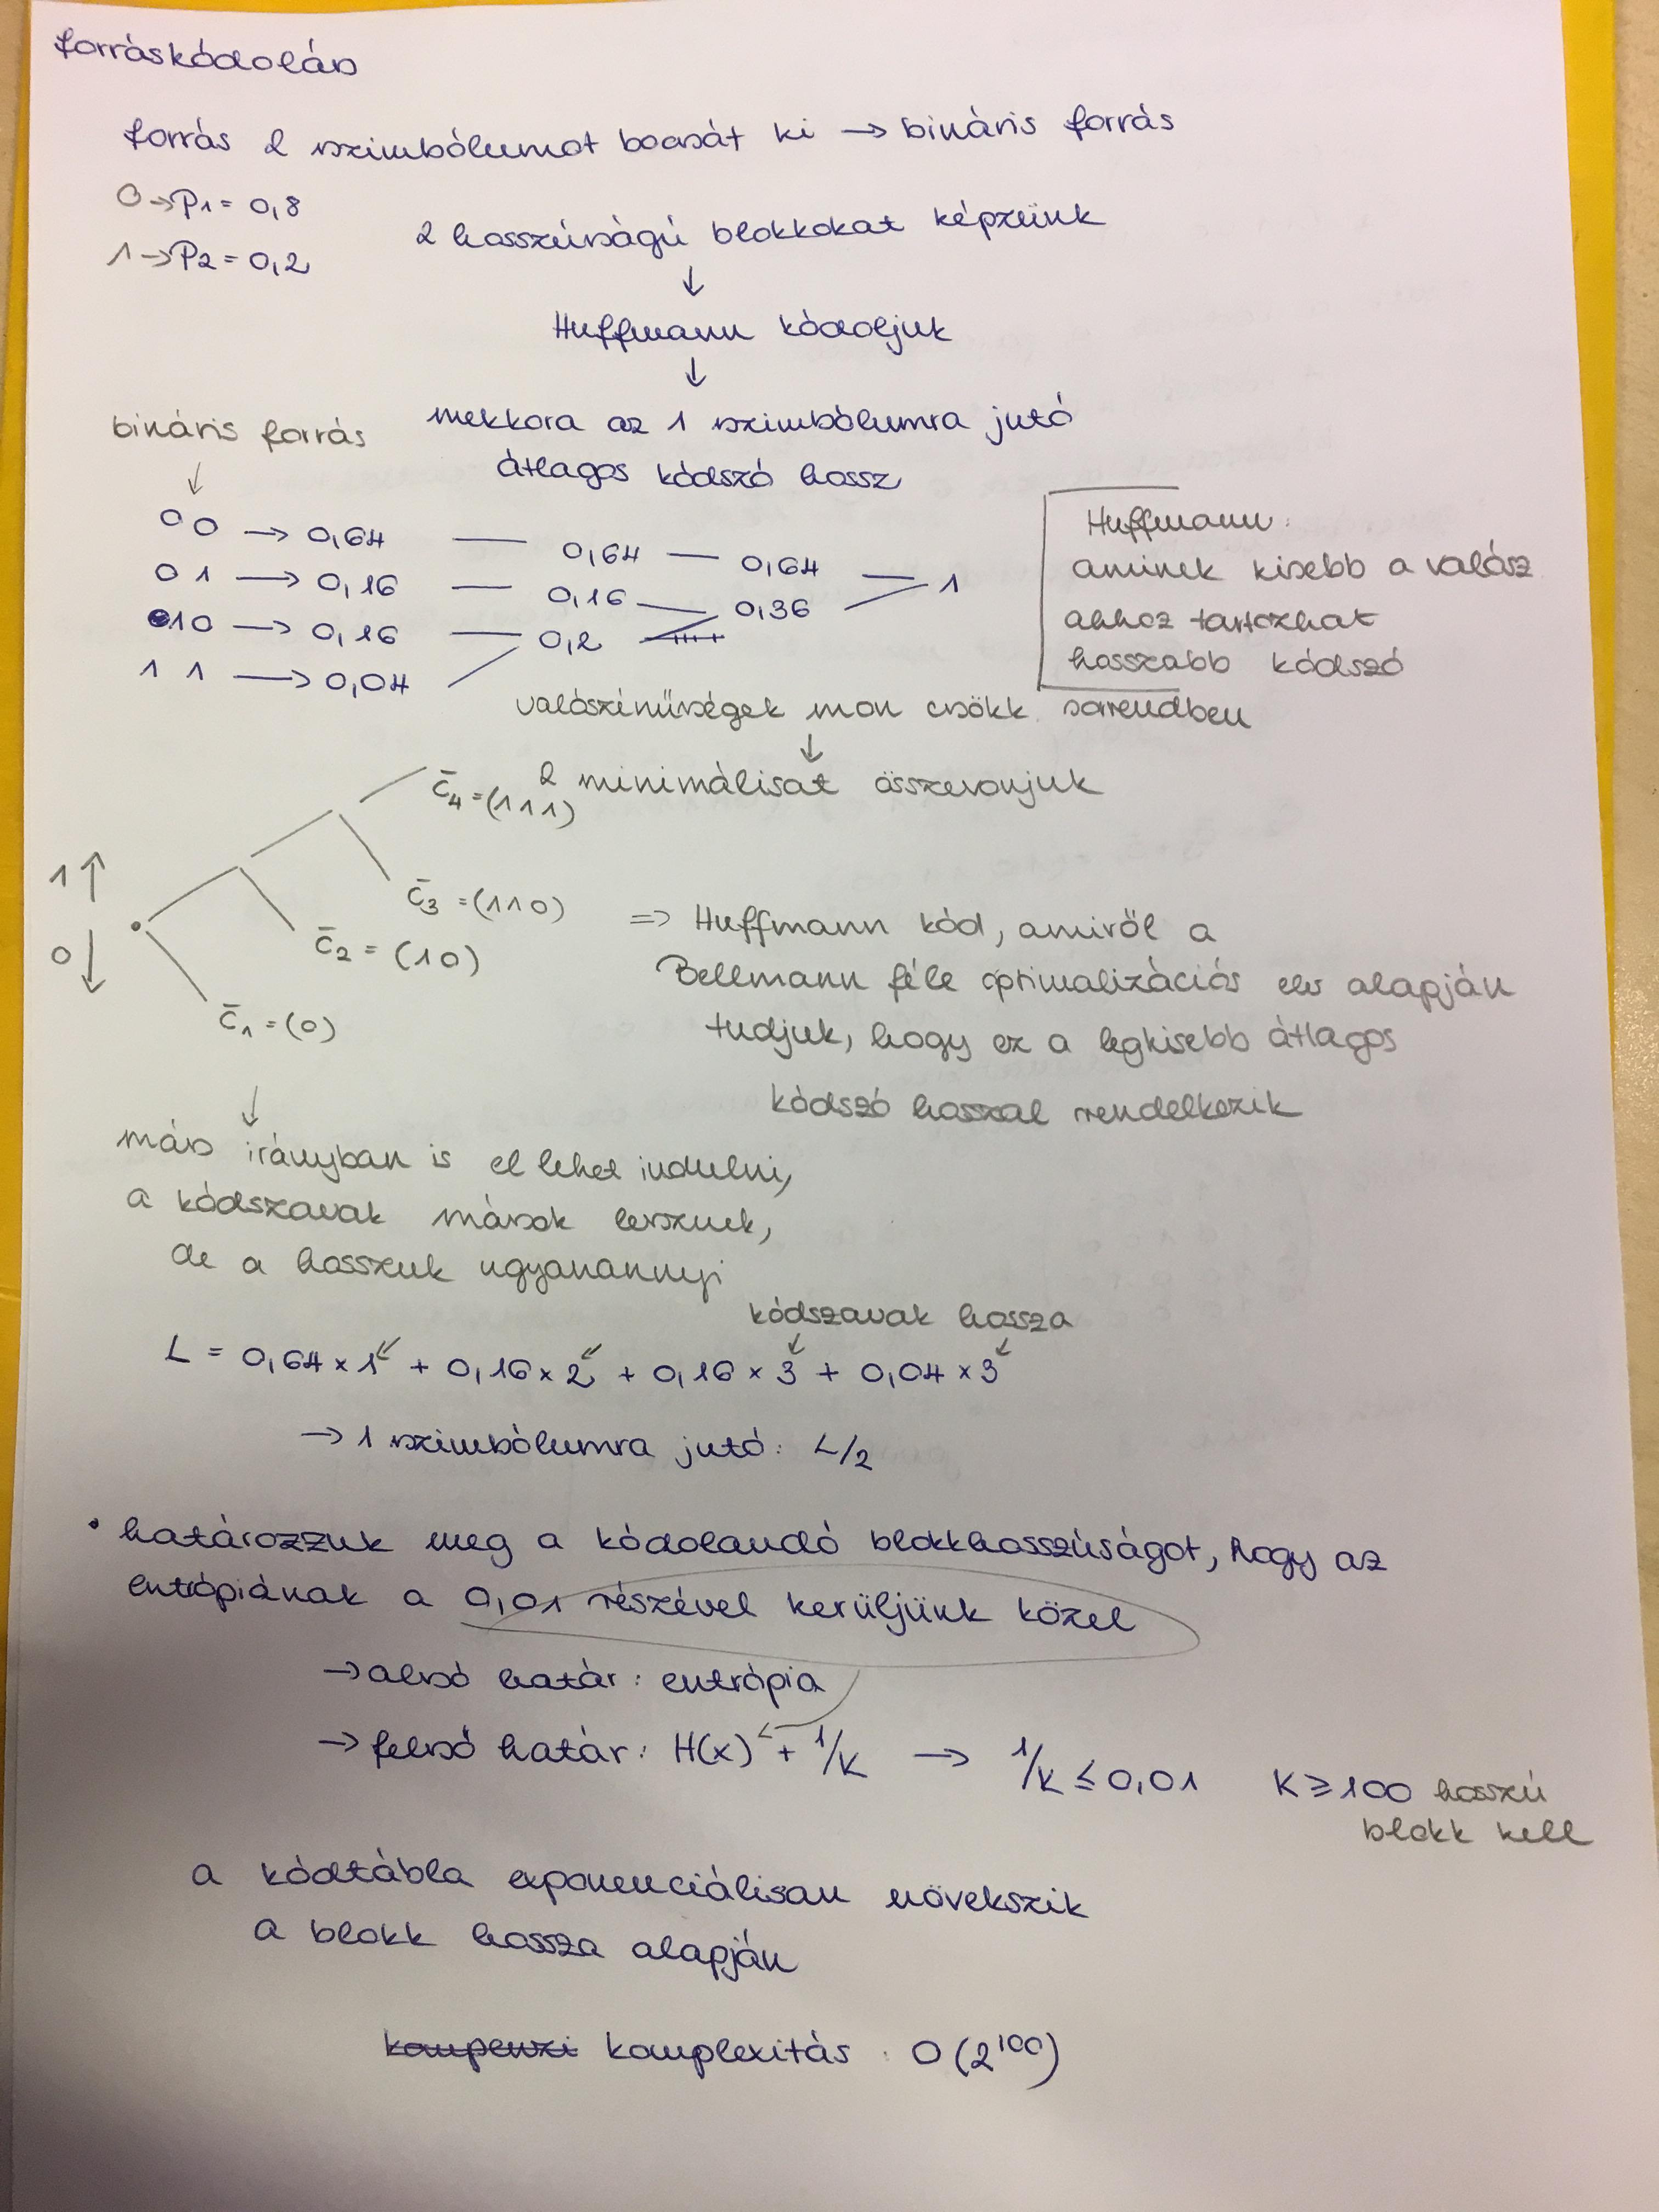 forráskódolás
forrás 2 szimbólumot bocsát ki → bináris forrás
0 → P1 = 0,8
1 → P2 = 0,2
2 hosszúságú blokkokat képzünk
↓
Huffmann kódoljuk
↓
mekkora az 1 szimbólumra jutó
átlagos kódszó hossz
bináris forrás
↓
00 → 0,64 — 0,64 — 0,64 — 1
01 → 0,16 — 0,16 — 0,36
10 → 0,16 — 0,2
11 → 0,04
Huffmann:
aminek kisebb a valósz
ahhoz tartozhat
hosszabb kódszó
valószínűségek mon csökk. sorrendben
↓
2 minimálisat összevonjuk
c̄4 = (111)
1 ↑
c̄3 = (110)
0 ↓
c̄2 = (10)
c̄1 = (0)
=> Huffmann kód, amiről a
Bellmann féle optimalizációs elv alapján
tudjuk, hogy ez a legkisebb átlagos
kódszó hosszal rendelkezik
↓
más irányban is el lehet indulni,
a kódszavak mások lesznek,
de a hosszuk ugyanannyi
kódszavak hossza
L = 0,64 × 1 + 0,16 × 2 + 0,16 × 3 + 0,04 × 3
→ 1 szimbólumra jutó: L/2
• határozzuk meg a kódolandó blokkhosszúságot, hogy az
entrópiának a 0,01 részével kerüljünk közel
→ alsó határ: entrópia
→ felső határ: H(x) + 1/K → 1/K ≤ 0,01 K ≥ 100 hosszú
blokk kell
a kódtábla exponenciálisan növekszik
a blokk hossza alapján
komplexitás: O(2^100)